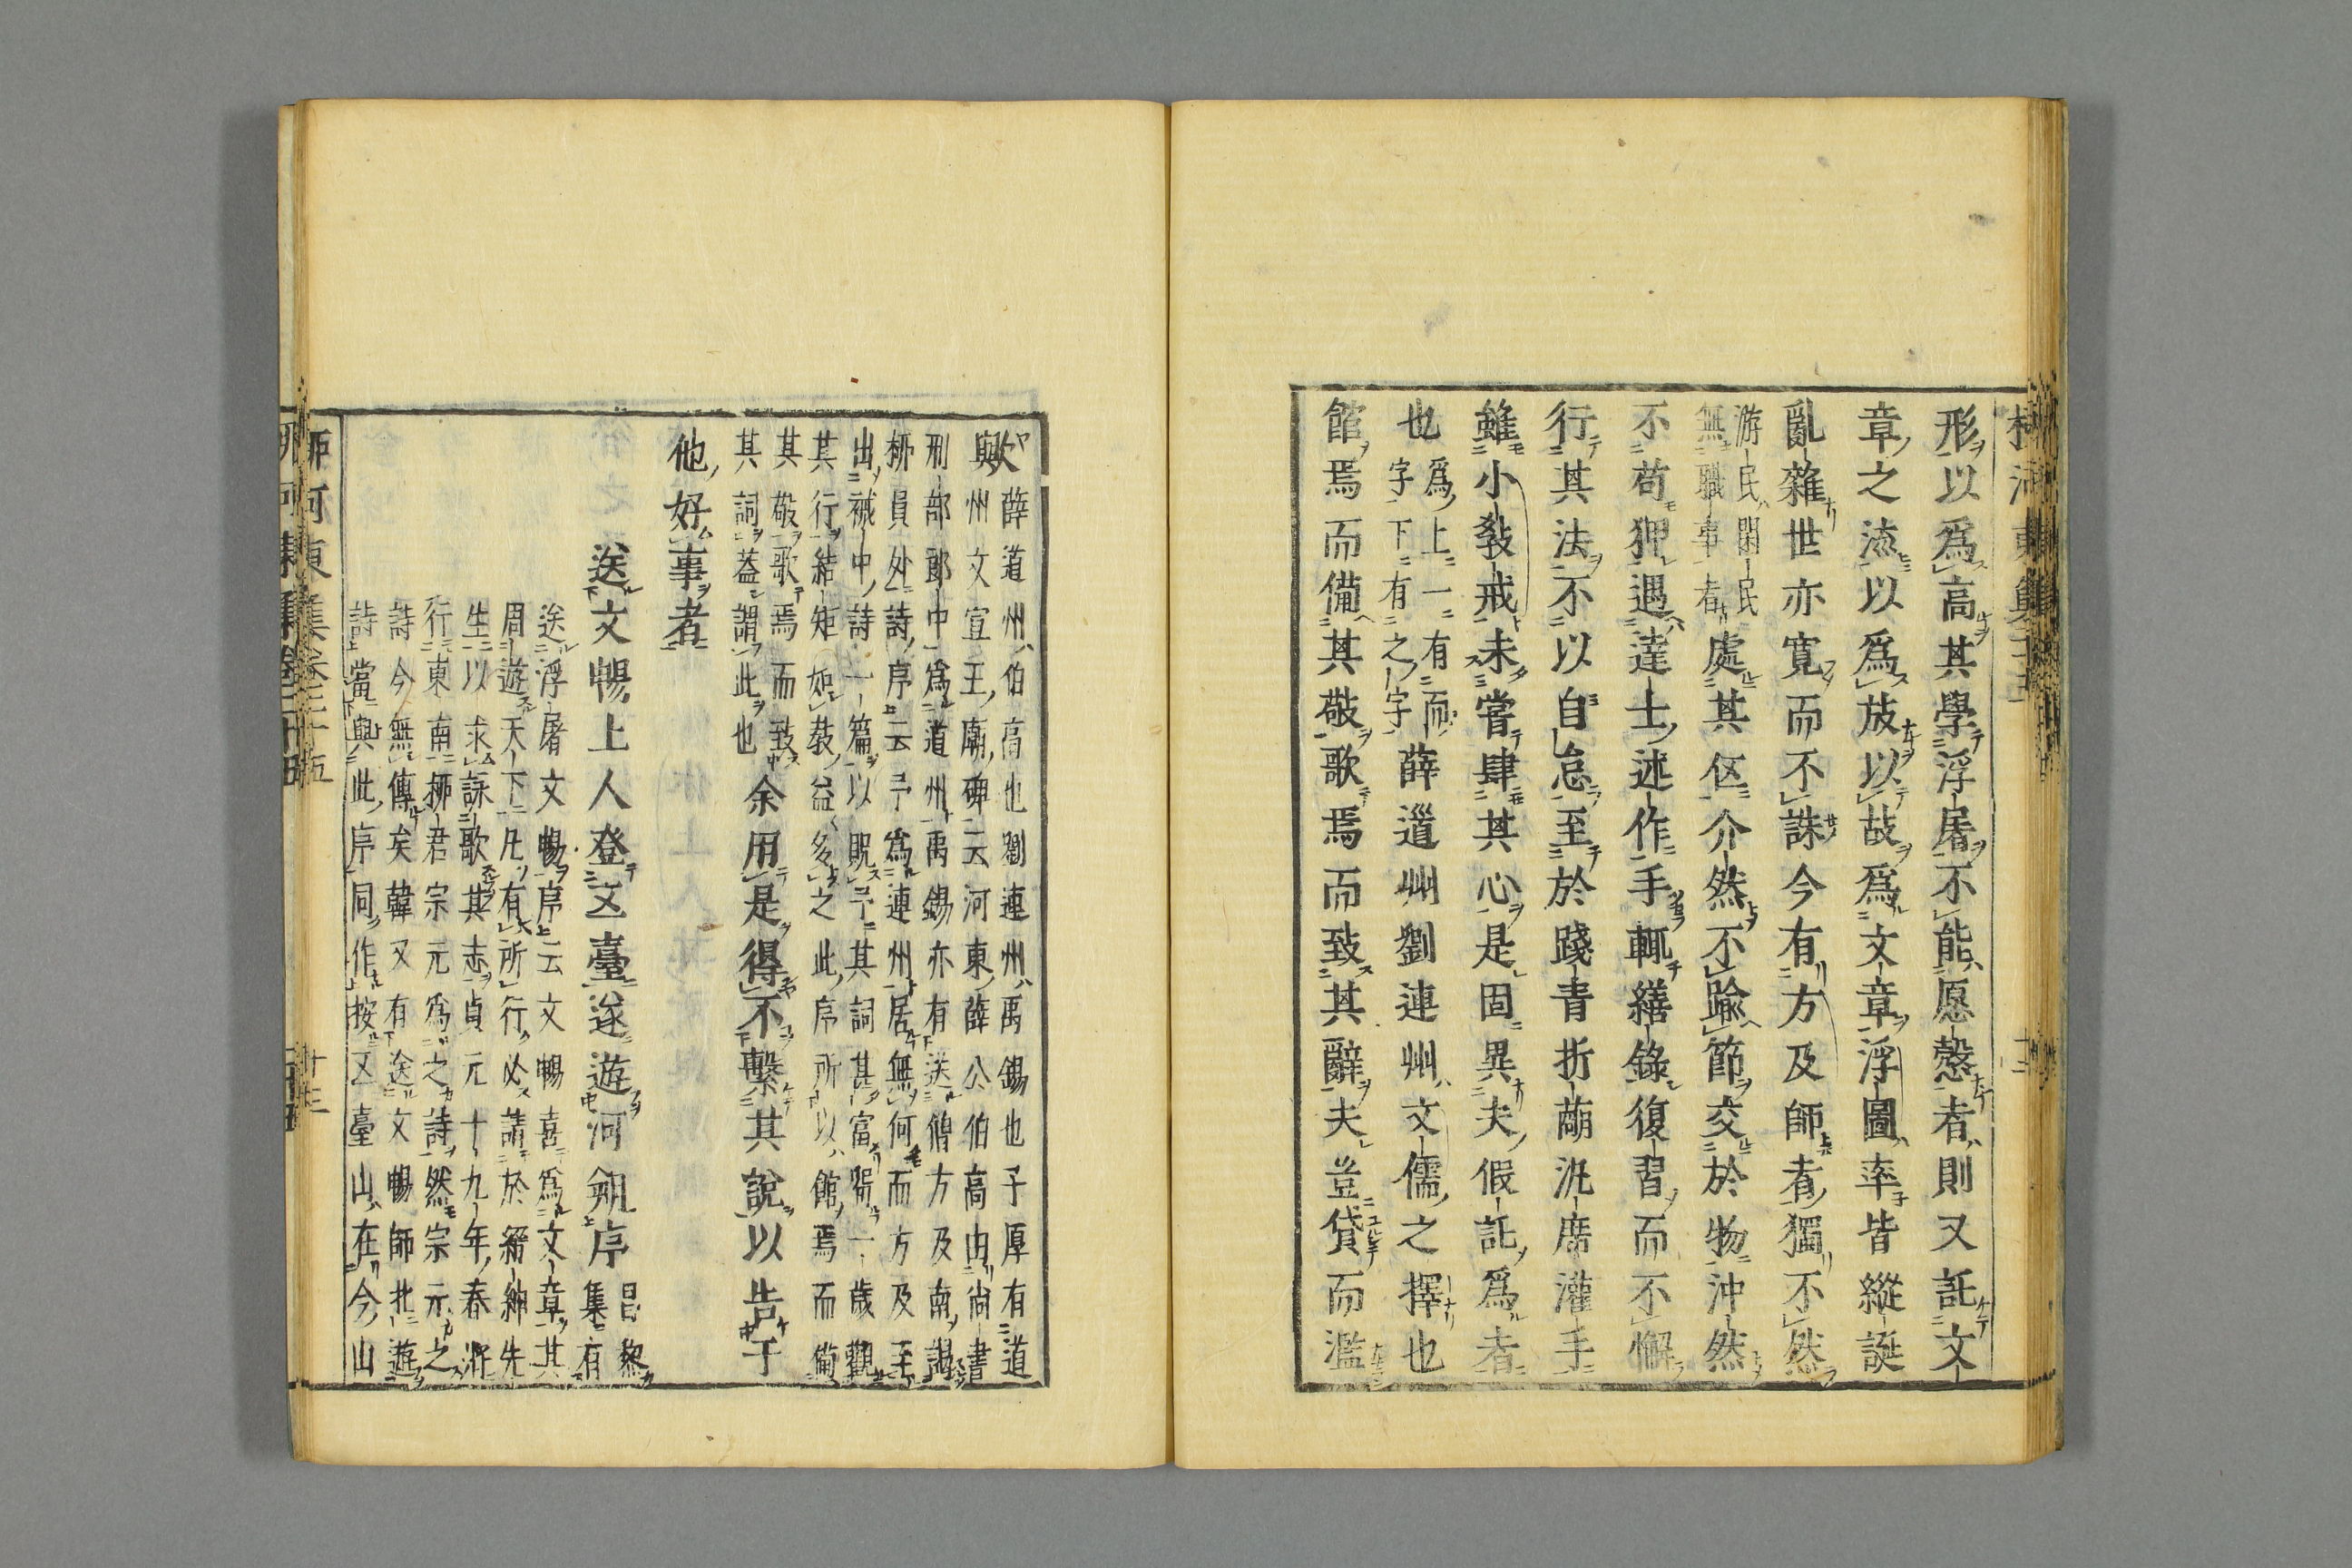 形以爲高其學浮屠不能愿愨者則又託文
章之流以爲放以故爲文章浮圖率皆縱誕
亂雜世亦寬而不誅今有方及師者獨不然
游民閑民
無職事者
處其伍介然不踰節交於物沖然
不苟狎遇達士述作手輒繕錄復習而不懈
行其法不以自怠至於踐青折萠汎席灌手
雖小教戒未嘗肆其心是固異夫假託爲者
也
爲上一有而
字下有之字
薛道州劉連州文儒之擇也
館焉而備其敬歌焉而致其辭夫豈貸而濫
歟
薛道州伯高也劉連州禹錫也子厚有道
州文宣王廟碑云河東薛公伯高由尚書
刑部郎中爲道州禹錫亦有送僧方及南謁
柳員外詩序云予爲連州居無何而方及至
出裓中詩一篇以貺予其詞甚富留一歲觀
其行結矩如教益多之此序所以館焉而備
其敬歌焉而致
其詞蓋謂此也
余用是得不繫其說以告于
他好事者
送文暢上人登五臺遂遊河朔序
昌黎
集有
送浮屠文暢序云文暢喜爲文章其
周遊天下凡有所行必請於縉紳先
生以求詠歌其志貞元十九年春將
行東南柳君宗元爲之詩然宗元之
詩今無傳矣韓又有送文暢師北遊
詩當與此序同作按五臺山在今山
柳河東集卷二十五
十三